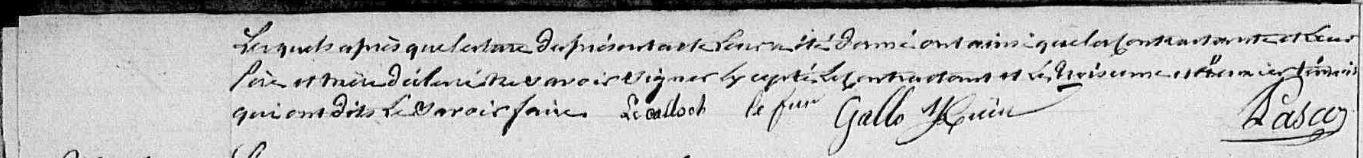 Lesquels après que lecture du présent acte leur a été donné ont ainsi que la Contractante et leur
Père et mère déclaré ne savoir signer Excepté le Contractant et les troisieme et dernier témoin
qui ont dits le savoir faire Le calloch le fur Gallo Pascoz